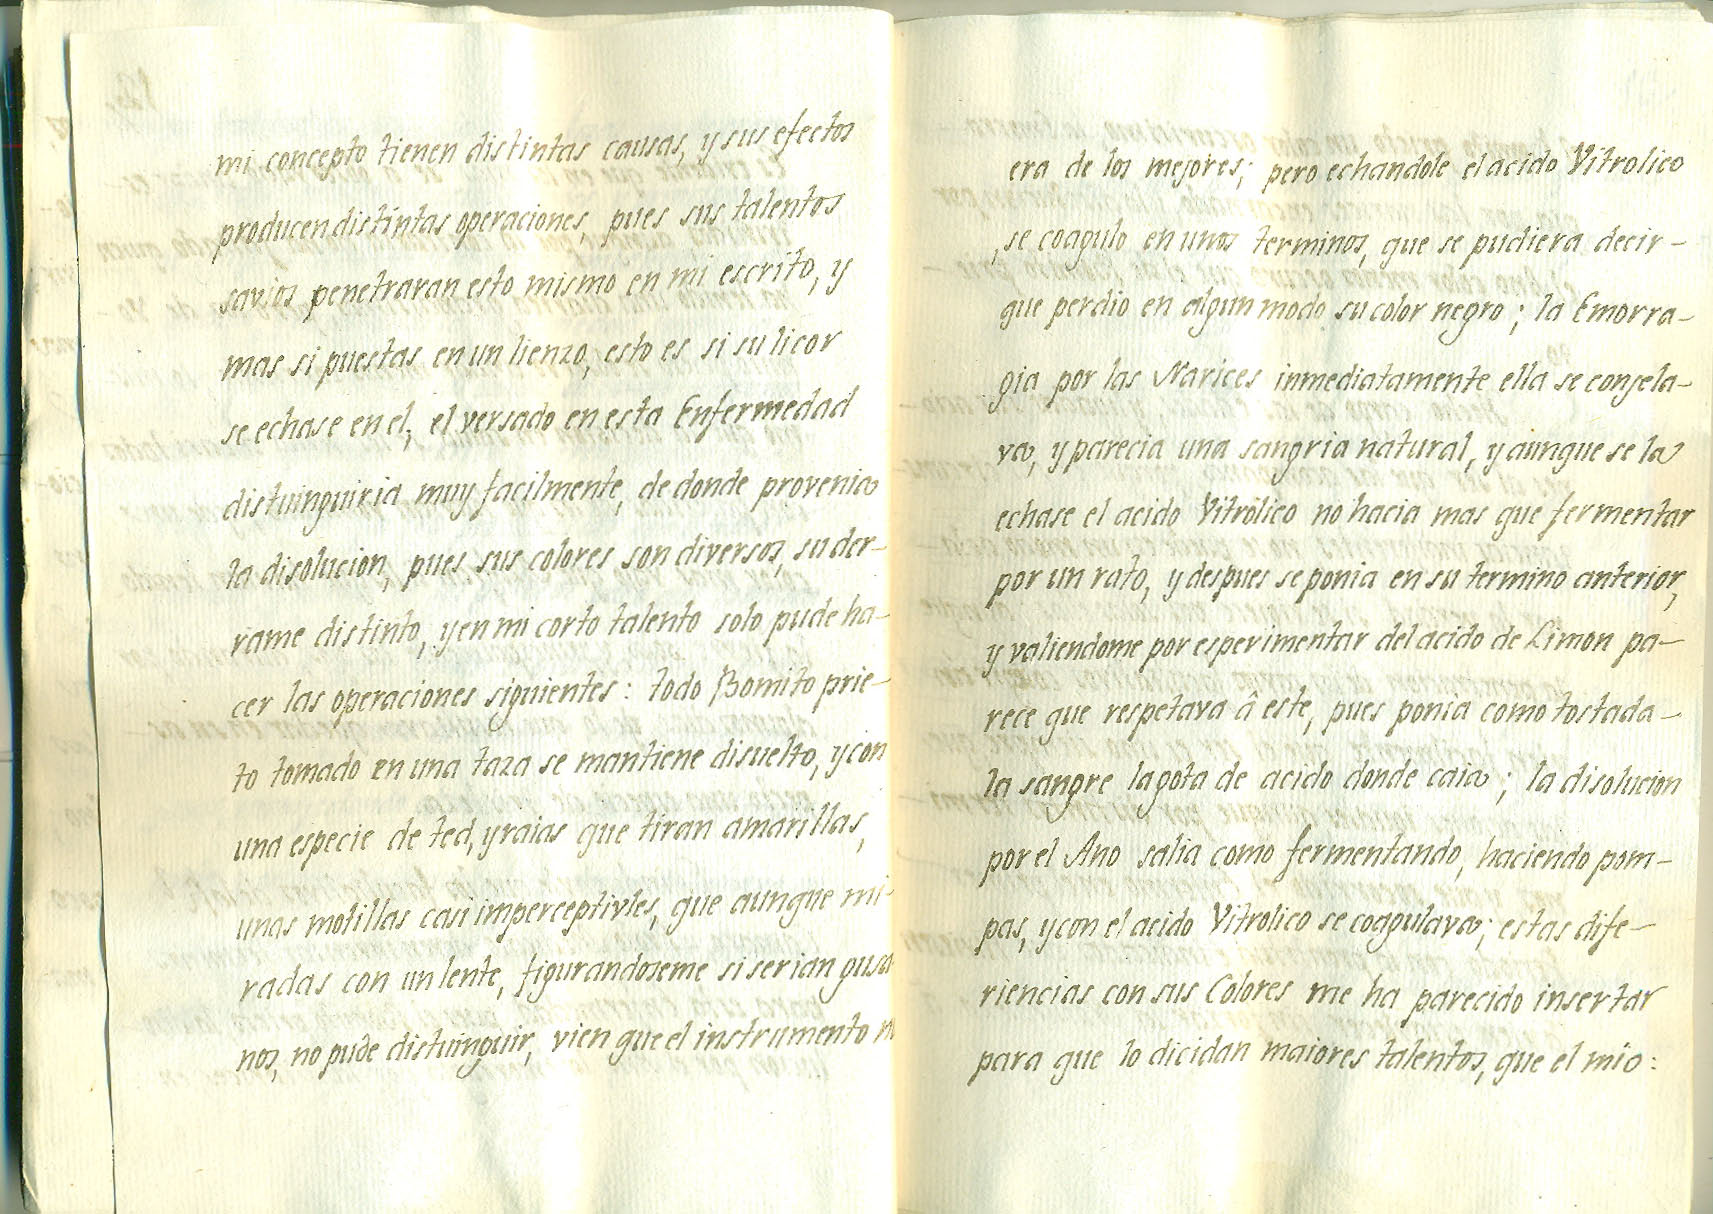 mi concepto tienen distintas causas, y sus efectos
producen distintas operaciones, pues sus talentos
savios penetraran esto mismo en mi escrito, y
mas si puestas en un lienzo, esto es si su licor
se echase en el, el versado en esta Enfermedad
distuinguiria muy facilmente, de donde provenia
la disolucion, pues sus colores son diversos, su der-
rame distinto, y en mi corto talento solo pude ha-
cer las operaciones siguientes: todo Bomito prie-
to tomado en una taza se mantiene disuelto, y con
una especie de ted, y raias que tiran amarillas,
unas motillas casi imperceptivles, que aunque mi-
radas con un lente, figurandoseme si serian gusa-
nos, no pude distuinguir, vien que el instrumento no
era de los mejores; pero echandole el acido Vitrolico
, se coagulo en unos terminos, que se pudiera decir-
que perdio en algun modo su color negro; la Emorra-
gia por las Narices inmediatamente ella se conjela-
va, y parecia una sangria natural, y aunque se la
echase el acido Vitrólico no hacia mas que fermentar
por un rato, y despues se ponia en su termino anterior,
y valiendome por esperimentar del acido de Limon pa-
rece que respetava â este, pues ponia como tostada-
la sangre la gota de acido donde caia; la disolucion
por el Ano salia como fermentando, haciendo pom-
pas, y con el acido Vitrolico se coagulava; estas dife-
riencias con sus Colores me ha parecido insertar
para que lo dicidan maiores talentos, que el mio: